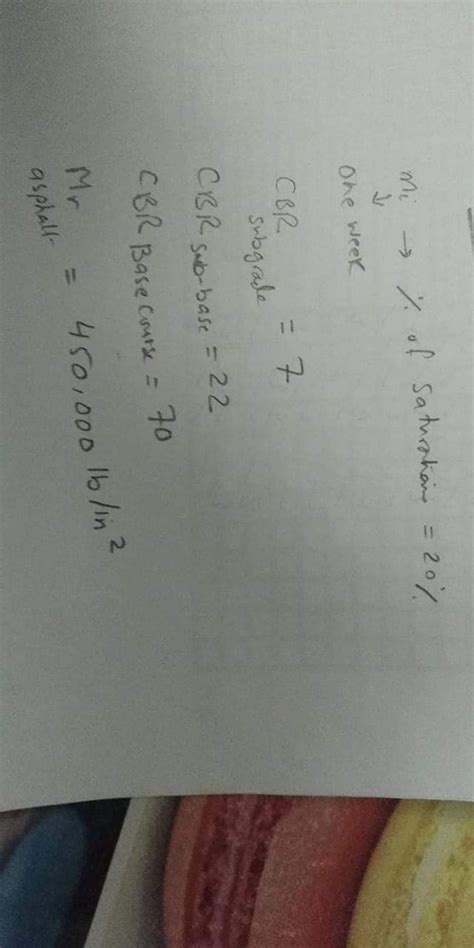 mi → % of saturation = 20%
↓
one week
CBR subgrade = 7
CBR sub-base = 22
CBR Base Course = 70
Mr asphalt = 450,000 lb/in²